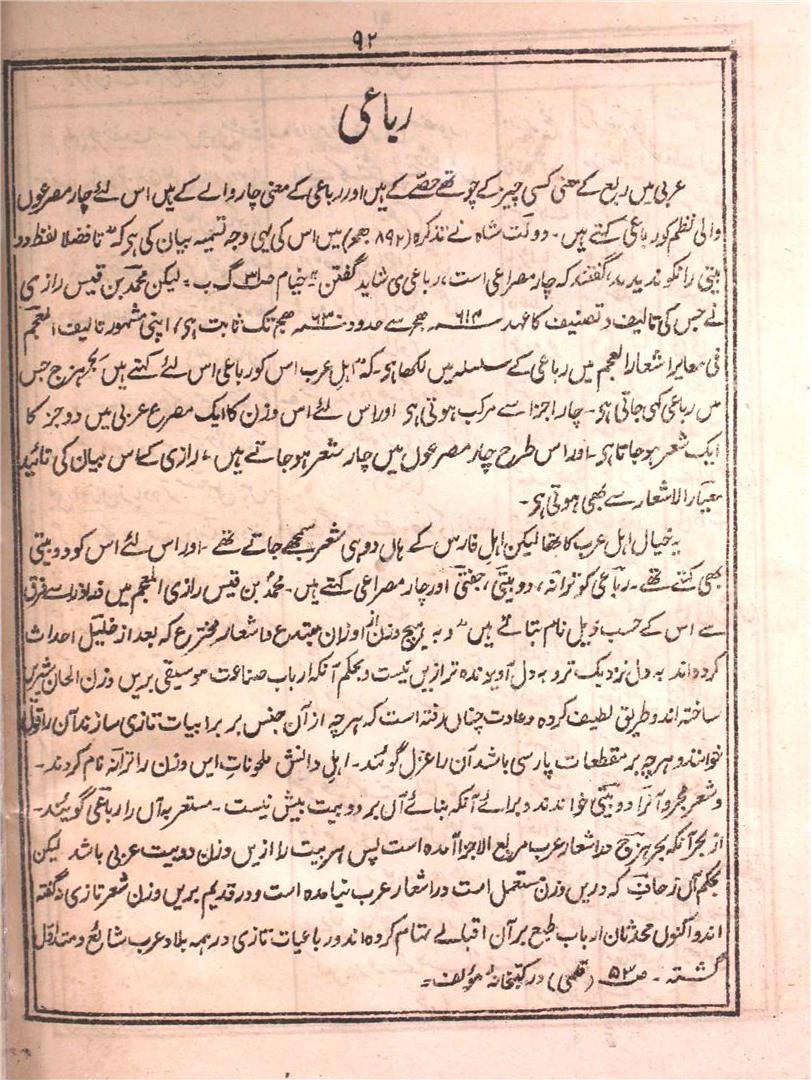 ۹۲
رباعی
عربی میں ربع کے معنی کسی چیز کے چوتھے حصے کے ہیں اور رباعی کے معنی چار والے کے ہیں اس لئے چار مصرعوں
والی نظم کو رباعی کہتے ہیں۔ دولت شاہ نے تذکرہ (۸۹۲ ھجر) میں اس کی یہی وجہ تسمیہ بیان کی ہر کہ "تا فضلا لفظ دو
بیتی را نکو ندیدند، گفتند کہ چار مصراعی است، رباعی می شاید گفتن" خیام ص۳۱ گ ب۔ لیکن محمد بن قیس رازی
نے جس کی تالیف و تصنیف کا عہد ۶۱۴ھ ھجر سے حدود ۶۳۰ھ ھج تک ثابت ہو، اپنی مشہور تالیف المعجم
فی معایر اشعار العجم میں رباعی کے سلسلہ میں لکھا ہو۔ کہ "اہل عرب اس کو رباعی اس لئے کہتے ہیں بحر ہزج جس
میں رباعی کہی جاتی ہو۔ چار اجزا سے مرکب ہوتی ہو اور اس لئے اس وزن کا ایک مصرع عربی میں دو جز کا
ایک شعر ہو جاتا ہو۔ اور اس طرح چار مصرعوں میں چار شعر ہو جاتے ہیں، رازی کے اس بیان کی تائید
معیار الاشعار سے بھی ہوتی ہو۔
یہ خیال اہل عرب کا تھا لیکن اہل فارس کے ہاں دو ہی شعر سمجھے جاتے تھے۔ اور اس لئے اس کو دوبیتی
بھی کہتے تھے۔ رباعی کو ترانہ، دوبیتی، جفتی اور چار مصراعی کہتے ہیں۔ محمد بن قیس رازی المعجم میں فرق
سے اس کے حسب ذیل نام بتاتے ہیں "و بہ ہیچ وزن از اوزان مبتدع و اشعار مخترع کہ بعد از خلیل احداث
کردہ اند بہ دل نزدیک تر و بہ دل آویزندہ تر ازیں نیست و بحکم آنکہ ارباب صناعت موسیقی بریں وزن الحان شریں
ساختہ اند و طریق لطیف کردہ و عادت چناں رفتہ است کہ ہر چہ از آن جنس بر ابیات تازی سازند آن را قول
خوانند و ہر چہ بر مقطعات پارسی باشد آن را غزل گوئند۔ اہل دانش ملحونات ایں وزن را ترانہ نام کردند۔
و شعر مجرد آنرا دوبیتی خواندند و برائے آنکہ بنائے آں بر دو بیت بیش نیست۔ مستعربہ آں را رباعی گوئیند۔
از بحر آنکہ بحر ہزج در اشعار عرب مربع الاجزا آمدہ است پس ہر بیت را ازیں وزن دو بیت عربی باشد لیکن
بحکم آں زحاف کہ دریں وزن مستعمل است در اشعار عرب نیامدہ است و در قدیم بریں وزن شعر تازی نگفتہ
اند و آکنوں محدثان ارباب طبع بر آن اقبالے تمام کردہ اند و رباعیات تازی در ہمہ بلاد عرب شایع و متداول
گشتہ۔ ص۵۳ (قلمی) در کتبخانۂ مؤلف۔